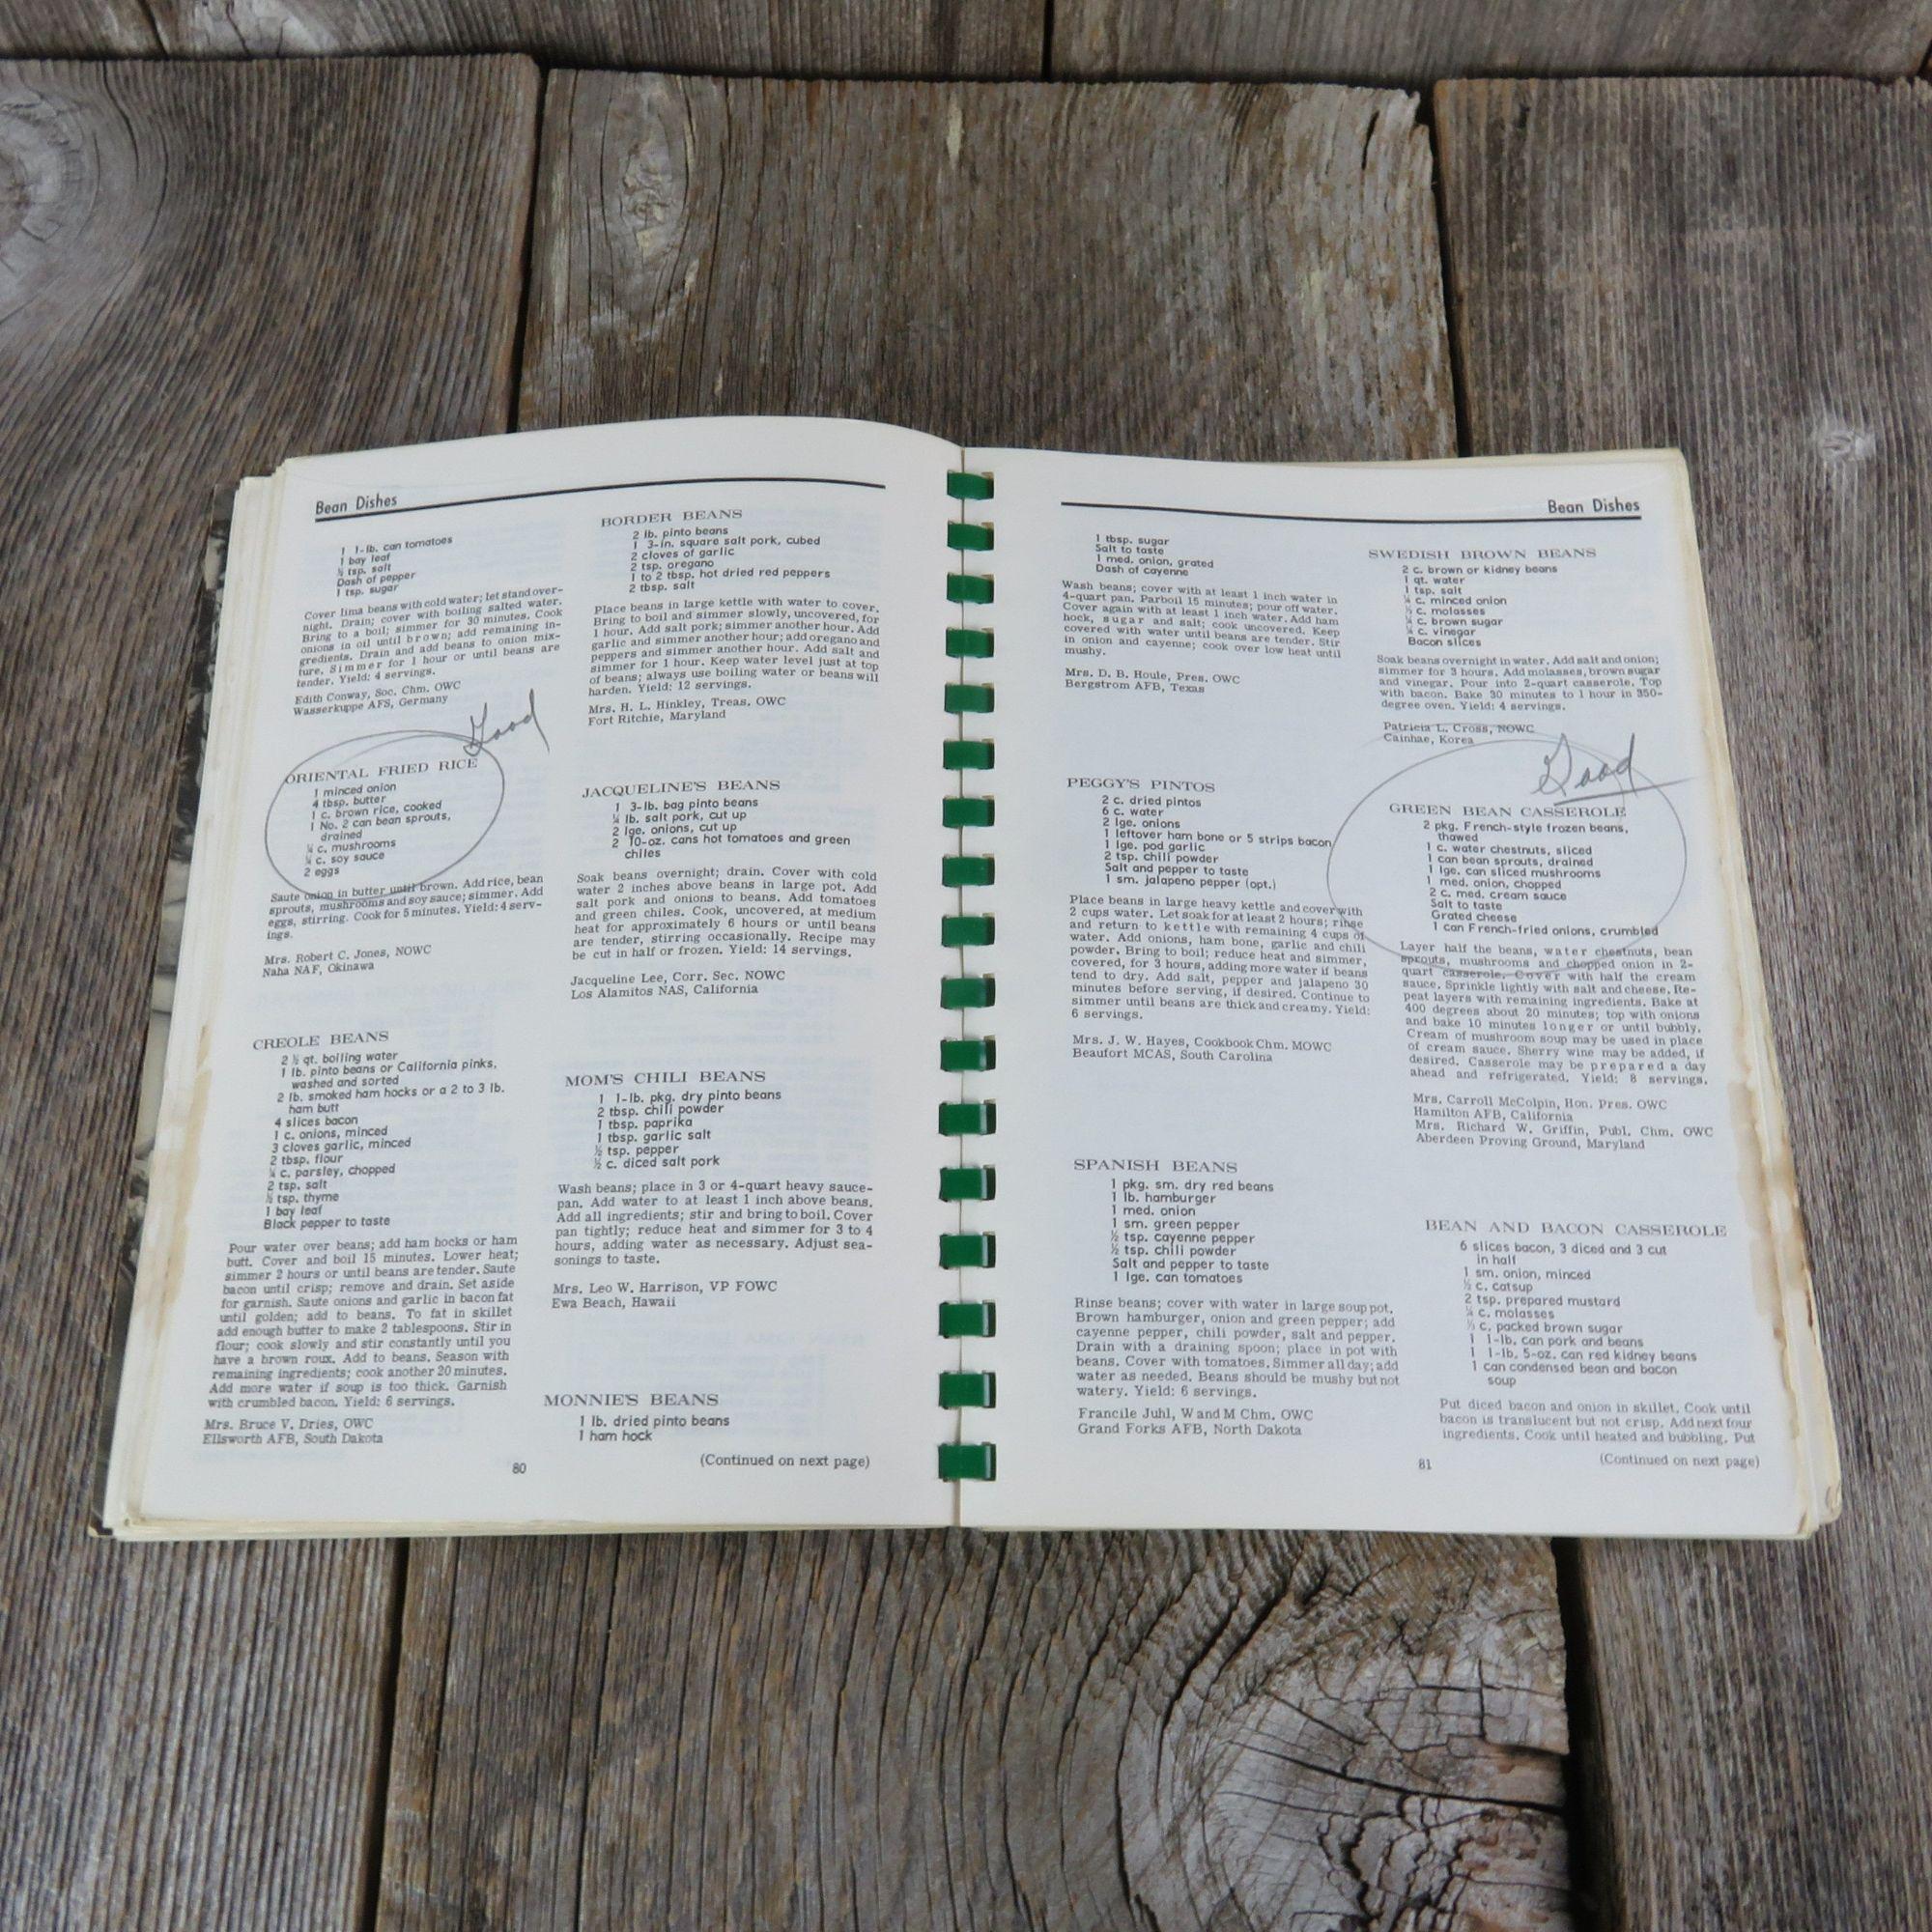 Bean Dishes
1 1-lb. can tomatoes
1 bay leaf
½ tsp. salt
Dash of pepper
1 tsp. sugar
Cover lima beans with cold water; let stand over-
night. Drain; cover with boiling salted water.
Bring to a boil; simmer for 30 minutes. Cook
onions in oil until brown; add remaining in-
gredients. Drain and add beans to onion mix-
ture. Simmer for 1 hour or until beans are
tender. Yield: 4 servings.
Edith Conway, Soc. Chm. OWC
Wasserkuppe AFS, Germany
Good
ORIENTAL FRIED RICE
1 minced onion
4 tbsp. butter
1 c. brown rice, cooked
1 No. 2 can bean sprouts,
drained
¼ c. mushrooms
¼ c. soy sauce
2 eggs
Saute onion in butter until brown. Add rice, bean
sprouts, mushrooms and soy sauce; simmer. Add
eggs, stirring. Cook for 5 minutes. Yield: 4 serv-
ings.
Mrs. Robert C. Jones, NOWC
Naha NAF, Okinawa
CREOLE BEANS
2 ½ qt. boiling water
1 lb. pinto beans or California pinks,
washed and sorted
2 lb. smoked ham hocks or a 2 to 3 lb.
ham butt
4 slices bacon
1 c. onions, minced
3 cloves garlic, minced
2 tbsp. flour
¼ c. parsley, chopped
2 tsp. salt
½ tsp. thyme
1 bay leaf
Black pepper to taste
Pour water over beans; add ham hocks or ham
butt. Cover and boil 15 minutes. Lower heat;
simmer 2 hours or until beans are tender. Saute
bacon until crisp; remove and drain. Set aside
for garnish. Saute onions and garlic in bacon fat
until golden; add to beans. To fat in skillet
add enough butter to make 2 tablespoons. Stir in
flour; cook slowly and stir constantly until you
have a brown roux. Add to beans. Season with
remaining ingredients; cook another 20 minutes.
Add more water if soup is too thick. Garnish
with crumbled bacon. Yield: 6 servings.
Mrs. Bruce V. Dries, OWC
Ellsworth AFB, South Dakota
BORDER BEANS
2 lb. pinto beans
1 3-in. square salt pork, cubed
2 cloves of garlic
2 tsp. oregano
1 to 2 tbsp. hot dried red peppers
2 tbsp. salt
Place beans in large kettle with water to cover.
Bring to boil and simmer slowly, uncovered, for
1 hour. Add salt pork; simmer another hour. Add
garlic and simmer another hour; add oregano and
peppers and simmer another hour. Add salt and
simmer for 1 hour. Keep water level just at top
of beans; always use boiling water or beans will
harden. Yield: 12 servings.
Mrs. H. L. Hinkley, Treas. OWC
Fort Ritchie, Maryland
JACQUELINE'S BEANS
1 3-lb. bag pinto beans
¼ lb. salt pork, cut up
2 lge. onions, cut up
2 10-oz. cans hot tomatoes and green
chiles
Soak beans overnight; drain. Cover with cold
water 2 inches above beans in large pot. Add
salt pork and onions to beans. Add tomatoes
and green chiles. Cook, uncovered, at medium
heat for approximately 6 hours or until beans
are tender, stirring occasionally. Recipe may
be cut in half or frozen. Yield: 14 servings.
Jacqueline Lee, Corr. Sec. NOWC
Los Alamitos NAS, California
MOM'S CHILI BEANS
1 1-lb. pkg. dry pinto beans
2 tbsp. chili powder
1 tbsp. paprika
1 tbsp. garlic salt
½ tsp. pepper
½ c. diced salt pork
Wash beans; place in 3 or 4-quart heavy sauce-
pan. Add water to at least 1 inch above beans.
Add all ingredients; stir and bring to boil. Cover
pan tightly; reduce heat and simmer for 3 to 4
hours, adding water as necessary. Adjust sea-
sonings to taste.
Mrs. Leo W. Harrison, VP FOWC
Ewa Beach, Hawaii
MONNIE'S BEANS
1 lb. dried pinto beans
1 ham hock
(Continued on next page)
80
Bean Dishes
1 tbsp. sugar
Salt to taste
1 med. onion, grated
Dash of cayenne
Wash beans; cover with at least 1 inch water in
4-quart pan. Parboil 15 minutes; pour off water.
Cover again with at least 1 inch water. Add ham
hock, sugar and salt; cook uncovered. Keep
covered with water until beans are tender. Stir
in onion and cayenne; cook over low heat until
mushy.
Mrs. D. B. Houle, Pres. OWC
Bergstrom AFB, Texas
PEGGY'S PINTOS
2 c. dried pintos
6 c. water
2 lge. onions
1 leftover ham bone or 5 strips bacon
1 lge. pod garlic
2 tsp. chili powder
Salt and pepper to taste
1 sm. jalapeno pepper (opt.)
Place beans in large heavy kettle and cover with
2 cups water. Let soak for at least 2 hours; rinse
and return to kettle with remaining 4 cups of
water. Add onions, ham bone, garlic and chili
powder. Bring to boil; reduce heat and simmer,
covered, for 3 hours, adding more water if beans
tend to dry. Add salt, pepper and jalapeno 30
minutes before serving, if desired. Continue to
simmer until beans are thick and creamy. Yield:
6 servings.
Mrs. J. W. Hayes, Cookbook Chm. MOWC
Beaufort MCAS, South Carolina
SPANISH BEANS
1 pkg. sm. dry red beans
1 lb. hamburger
1 med. onion
1 sm. green pepper
½ tsp. cayenne pepper
½ tsp. chili powder
Salt and pepper to taste
1 lge. can tomatoes
Rinse beans; cover with water in large soup pot.
Brown hamburger, onion and green pepper; add
cayenne pepper, chili powder, salt and pepper.
Drain with a draining spoon; place in pot with
beans. Cover with tomatoes. Simmer all day; add
water as needed. Beans should be mushy but not
watery. Yield: 6 servings.
Francile Juhl, W and M Chm. OWC
Grand Forks AFB, North Dakota
SWEDISH BROWN BEANS
2 c. brown or kidney beans
1 qt. water
1 tsp. salt
¼ c. minced onion
½ c. molasses
¼ c. brown sugar
¼ c. vinegar
Bacon slices
Soak beans overnight in water. Add salt and onion;
simmer for 3 hours. Add molasses, brown sugar
and vinegar. Pour into 2-quart casserole. Top
with bacon. Bake 30 minutes to 1 hour in 350-
degree oven. Yield: 4 servings.
Patricia L. Cross, NOWC
Cainhae, Korea
Good
GREEN BEAN CASSEROLE
2 pkg. French-style frozen beans,
thawed
1 c. water chestnuts, sliced
1 can bean sprouts, drained
1 lge. can sliced mushrooms
1 med. onion, chopped
2 c. med. cream sauce
Salt to taste
Grated cheese
1 can French-fried onions, crumbled
Layer half the beans, water chestnuts, bean
sprouts, mushrooms and chopped onion in 2-
quart casserole. Cover with half the cream
sauce. Sprinkle lightly with salt and cheese. Re-
peat layers with remaining ingredients. Bake at
400 degrees about 20 minutes; top with onions
and bake 10 minutes longer or until bubbly.
Cream of mushroom soup may be used in place
of cream sauce. Sherry wine may be added, if
desired. Casserole may be prepared a day
ahead and refrigerated. Yield: 8 servings.
Mrs. Carroll McColpin, Hon. Pres. OWC
Hamilton AFB, California
Mrs. Richard W. Griffin, Publ. Chm. OWC
Aberdeen Proving Ground, Maryland
BEAN AND BACON CASSEROLE
6 slices bacon, 3 diced and 3 cut
in half
1 sm. onion, minced
½ c. catsup
2 tsp. prepared mustard
¼ c. molasses
½ c. packed brown sugar
1 1-lb. can pork and beans
1 1-lb. 5-oz. can red kidney beans
1 can condensed bean and bacon
soup
Put diced bacon and onion in skillet. Cook until
bacon is translucent but not crisp. Add next four
ingredients. Cook until heated and bubbling. Put
(Continued on next page)
81